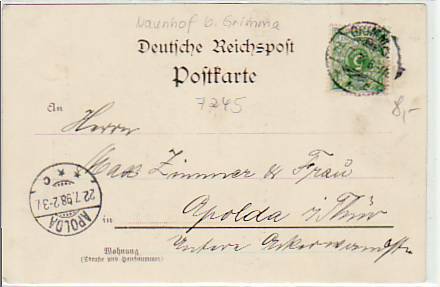 Naunhof b. Grimma
Deutsche Reichspost
Postkarte
7245
8,-
GRIMMA
5
An
Herrn
Max Zimmer & Frau
in
Apolda i/Thür
Untere
Wohnung
(Straße und Hausnummer)
APOLDA
22.7.98 2-3
* * C